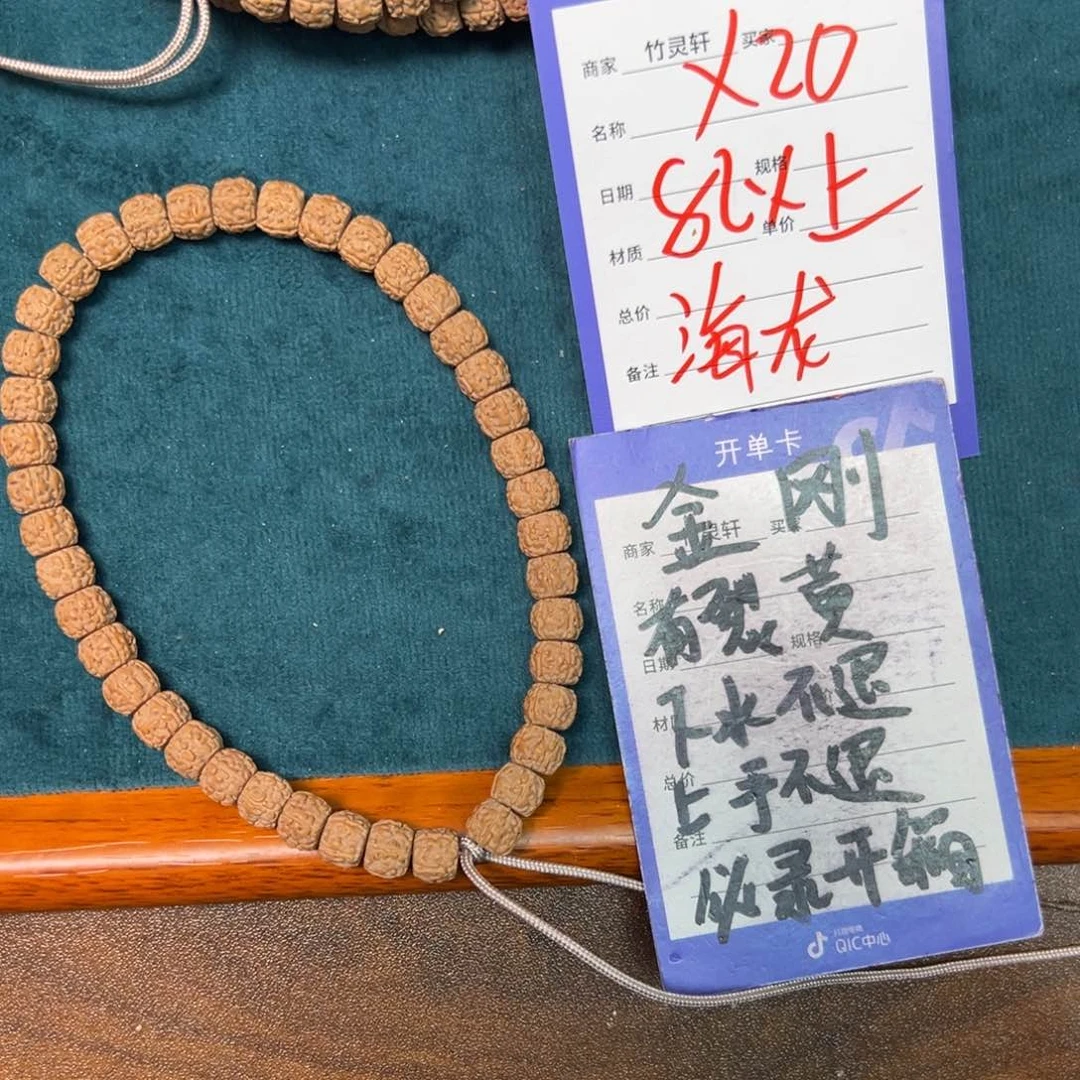 商家 竹灵轩 买家
X20
名称
8以上
日期 规格
材质 单价
总价
海龙
备注
开单卡
金刚
商家 灵轩 买家
名称
有裂黄
日期 规格
下水不退
材
总价
上手不退
备注
必录开箱
抖音电商
QIC中心